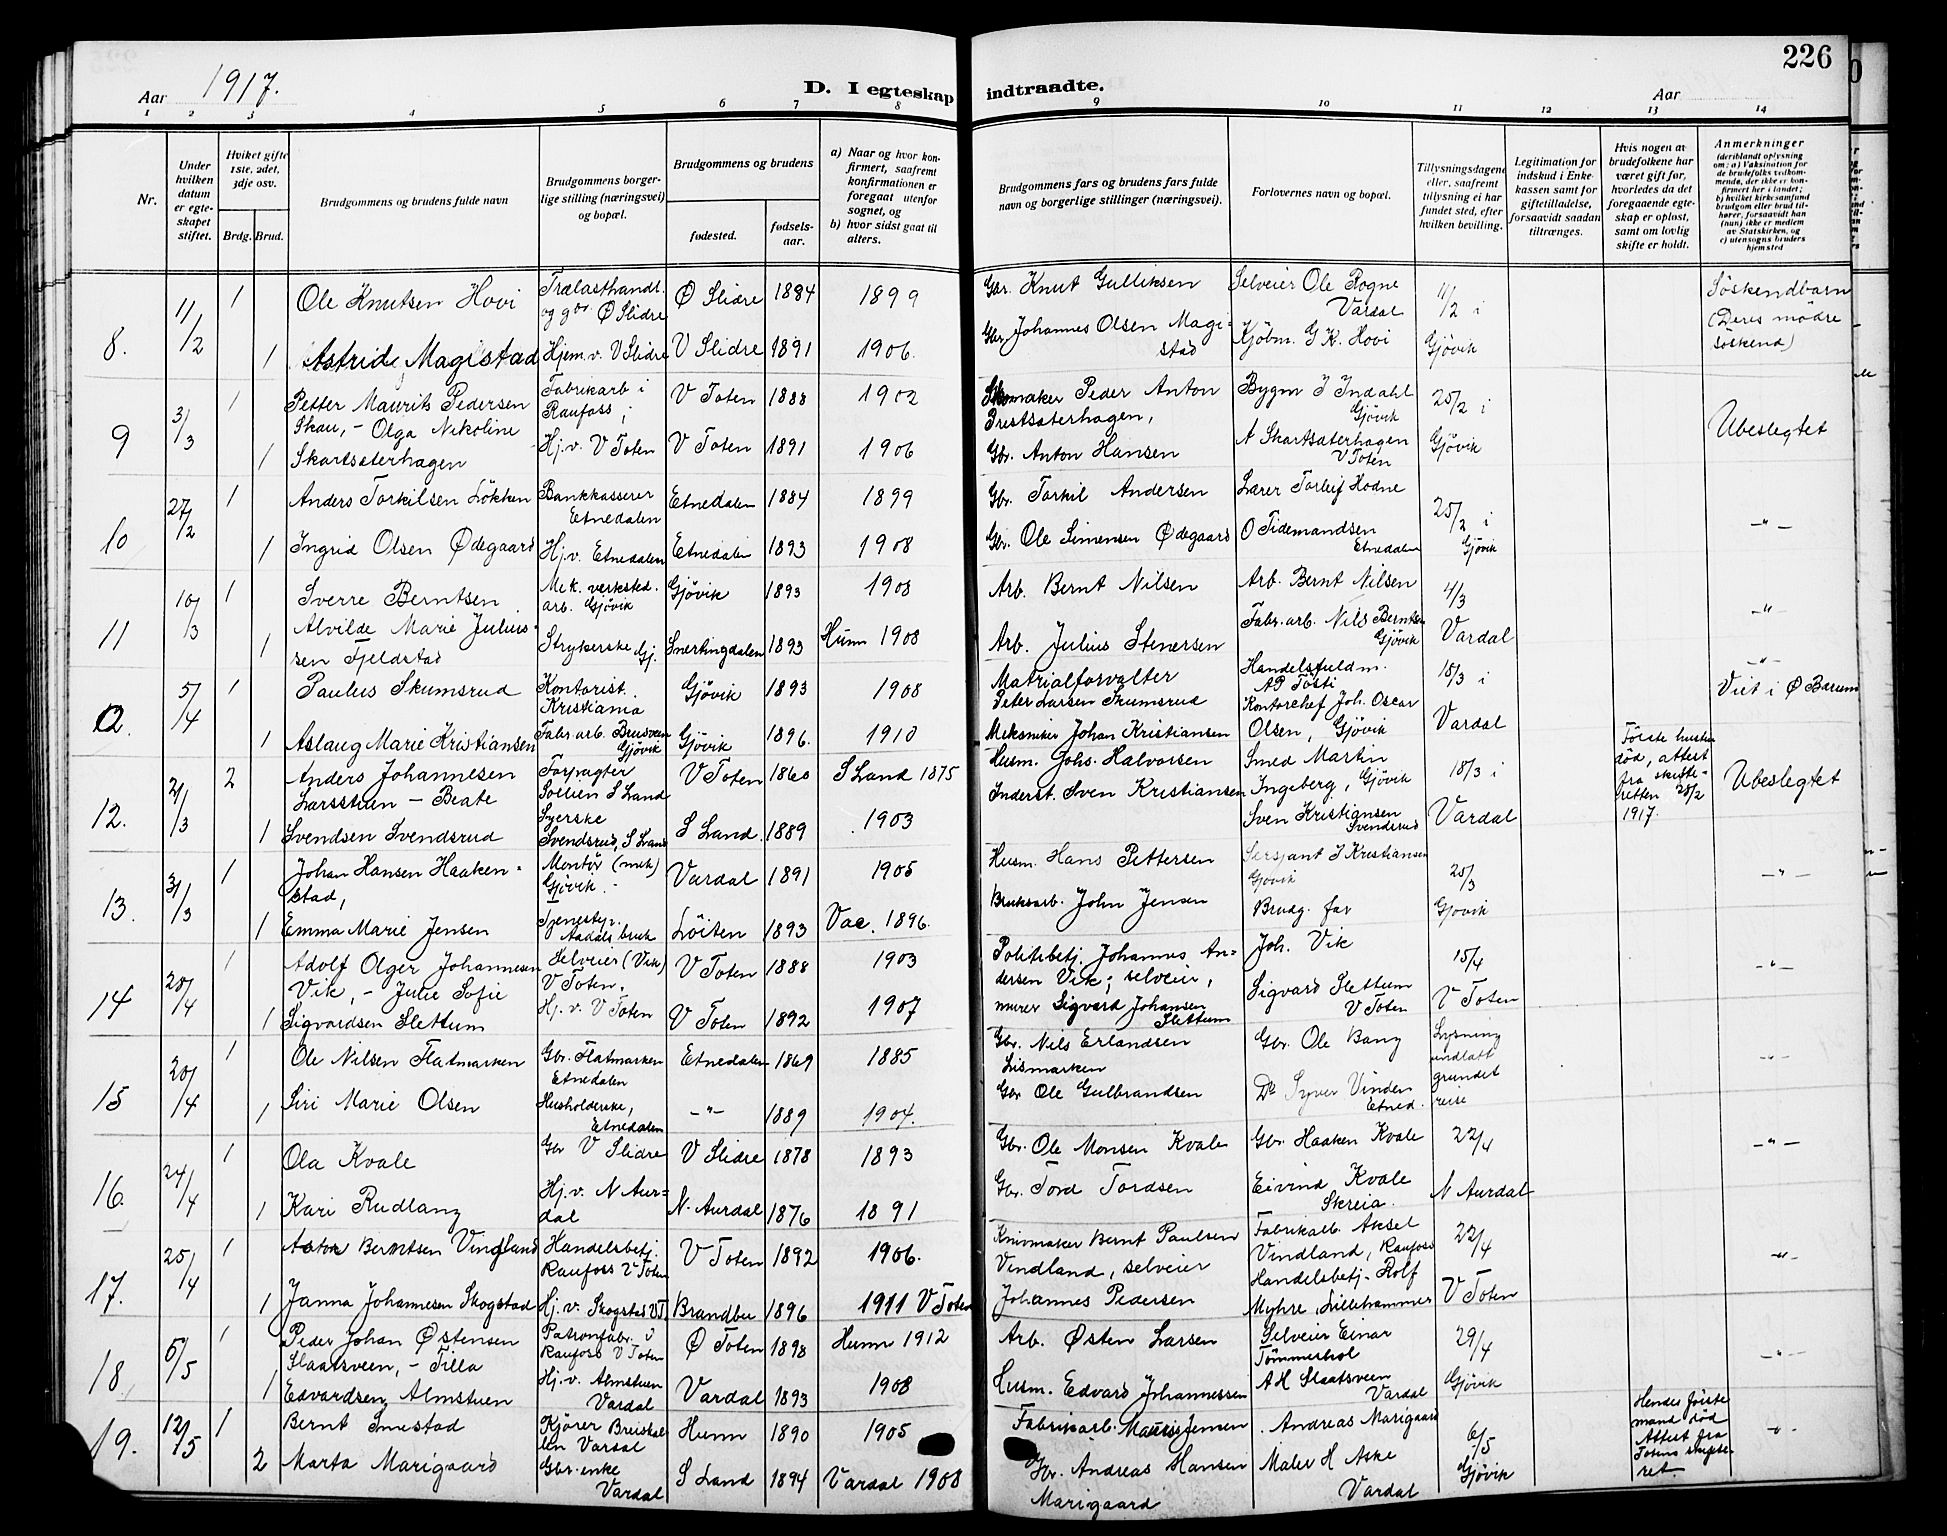 226
Aar 1917.
D. I egteskap indtraadte.
Aar
1 2 3 4 5 6 7 8 9 10 11 12 13 14
Nr.
Under hvilken datum er egteskapet stiftet.
Hvilket gifte 1ste, 2det, 3dje osv.
Brdg. Brud.
Brudgommens og brudens fulde navn
Brudgommens borgerlige stilling (næringsvei) og bopæl.
Brudgommens og brudens
fødested.
fødselsaar.
a) Naar og hvor konfirmert, saafremt konfirmationen er foregaat utenfor sognet, og
b) hvor sidst gaat til alters.
Brudgommens fars og brudens fars fulde navn og borgerlige stillinger (næringsvei).
Forlovernes navn og bopæl.
Tillysningsdagene eller, saafremt tillysning ei har fundet sted, efter hvilken bevilling.
Legitimation for indskud i Enkekassen samt for giftetilladelse, forsaavidt saadan tiltrænges.
Hvis nogen av brudefolkene har været gift før, hvorledes da det foregaaende egteskap er opløst, samt om lovlig skifte er holdt.
Anmerkninger (deriblandt oplysning om: a) Vaksination for de brudefolks vedkommende, der ikke er konfirmert her i landet; b) hvilket kirkesamfund brudgom eller brud tilhører, forsaavidt han (hun) ikke er medlem av Statskirken, og c) utensogns bruders hjemsted
8. 11/2 1 Ole Knutsen Hovi Trælasthandl. og gbr. Ø Slidre Ø Slidre 1884 1899 Gbr. Knut Gulliksen Selveier Ole Rogne Vardal 11/2 i Søskendbarn
1 Astrid Magistad Hjem.v. V Slidre V Slidre 1891 1906. Gbr. Johannes Olsen Magistad Kjøbm. G K. Hovi Gjøvik (Deres mødre søskend)
9 3/3 1 Petter Maurits Pedersen Skau, - Olga Nikoline Fabrikarb i Raufoss; V Toten 1888 1902 Skomaker Peder Anton Prestsæterhagen, Bygm J Indahl Gjøvik 25/2 i Ubeslegtet
1 Skartsæterhagen Hj.v. V Toten V Toten 1891 1906 Gbr. Anton Hansen A Skartsæterhagen V Toten Gjøvik
10 27/2 1 Anders Torkilsen Løkken Bankkasserer Etnedalen Etnedalen 1884 1899 Gbr. Torkil Andersen Lærer Torleif Hodne 25/2 i -"-
1 Ingrid Olsen Ødegaard Hj.v. Etnedalen Etnedalen 1893 1908 Gbr. Ole Simensen Ødegaard O Tidemandsen Etnedalen Gjøvik
11 10/3 1 Sverre Berntsen Mek. verksted. arb. Gjøvik Gjøvik 1893 1908 Arb. Bernt Nilsen Arb. Bernt Nilsen 4/3 -"-
1 Alvilde Marie Juliussen Fjeldstad Strykerske Gj. Snertingdalen 1893 Hunn 1908 Arb. Julius Stenersen Fabr.arb. Nils Berntsen Gjøvik Vardal -"-
12. 5/4 1 Paulus Skumsrud Kontorist. Kristiania Gjøvik 1893 1908 Matrialforvalter Peter Larsen Skumsrud Handelsfuldm. AP Tosti 18/3 i Viet i Ø Bærum
1 Aslaug Marie Kristiansen Fabr.arb. Brusveen Gjøvik Gjøvik 1896. 1910 Mekaniker Johan Kristiansen Kontorchef Joh. Oscar Olsen, Gjøvik Vardal
12. 21/3 2 Anders Johannesen Larsstuen - Beate Forpagter Sollien S Land V Toten 1860 S Land 1875 Husm. Johs. Halvorsen Smed Martin Ingeberg, Gjøvik 18/3 i Første hustru død, attest fra skifteretten 28/2 1917. Ubeslegtet
1 Svendsen Svendsrud Syerske Svendsrud, S Land S Land. 1889 1903 Inderst. Sven Kristiansen Sven Kristiansen Svendsrud Vardal
13. 31/3 1 Johan Hansen Haakenstad, Montør (mek) Gjøvik. - Vardal 1891 1905 Husm. Hans Pettersen Sersjant J Kristiansen Gjøvik 25/3 -"-
1 Emma Marie Jensen Tjenestp. Aadals bruk Løiten 1893 Vac. 1896. Bruksarb. John Jensen Brudg. far Gjøvik
14 20/4 1 Adolf Olger Johannesen Vik, - Julie Sofie Selveier (Vik) V Toten. V Toten 1888 1903 Politibetj. Johannes Andersen Vik; selveier, Joh. Vik 15/4 -"-
1 Sigvardsen Slettum Hj.v. V Toten V Toten 1892 1907 murer Sigvard Johansen Slettum Sigvard Slettum V Toten V Toten
15 20/4 1 Ole Nilsen Flatmarken Gbr. Flatmarken Etnedalen Etnedalen 1869 1885 Gbr. Nils Erlandsen Lismarken Gbr. Ole Bang Lysning undlatt grundet reise -"-
1 Siri Marie Olsen Husholderske, Etnedalen -"- 1889 1904. Gbr Ole Gulbrandsen Do Syver Vinden Etned.
16. 24/4 1 Ola Kvale Gbr V Slidre V Slidre 1878 1893 Gbr. Ole Monsen Kvale Gbr. Haaken Kvale 22/4 -"-
1 Kari Rudlang Hj.v. N Aurdal N. Aurdal 1876 1891 Gbr. Tord Tordsen Eivind Kvale Skreia. N Aurdal
17. 25/4 1 Anton Berntsen Vindland Handelsbetj. Raufoss V Toten V Toten 1892 1906. Knivmaker Bernt Paulsen Vindland, selveier Fabrikarb. Aksel Vindland, Raufoss 22/4 -"-
1 Janna Johannesen Skogstad Hj.v. Skogstad V T. Brandbu 1896 1911 V Toten Johannes Pedersen Handelsbetj. Rolf Myhre, Lillehammer V Toten
18. 5/5 1 Peder Johan Østensen Slaatsveen, - Tilla Patronfabr. i Raufoss V Toten Ø Toten 1898 Hunn 1912 Arb. Østen Larsen Selveier Einar Tømmerhol 29/4 -"-
1 Edvardsen Almstuen Hj.v. Almstuen Vardal Vardal 1893 1908 Husm. Edvard Johannessen A H Slaatsveen Vardal Gjøvik
19. 12/5 1 Bernt Smestad Kjører Bredskallen Vardal Hunn 1890 1905 Fabrikarb. Mauritz Jensen Andreas Marigaard 6/5 Hendes første mand død Attest fra Totens skifteret -"-
2 Marta Marigaard Gbr.enke Vardal S Land 1894 Vardal 1908 Gbr. Andreas Hansen Marigaard Maler H Aske Vardal Gjøvik